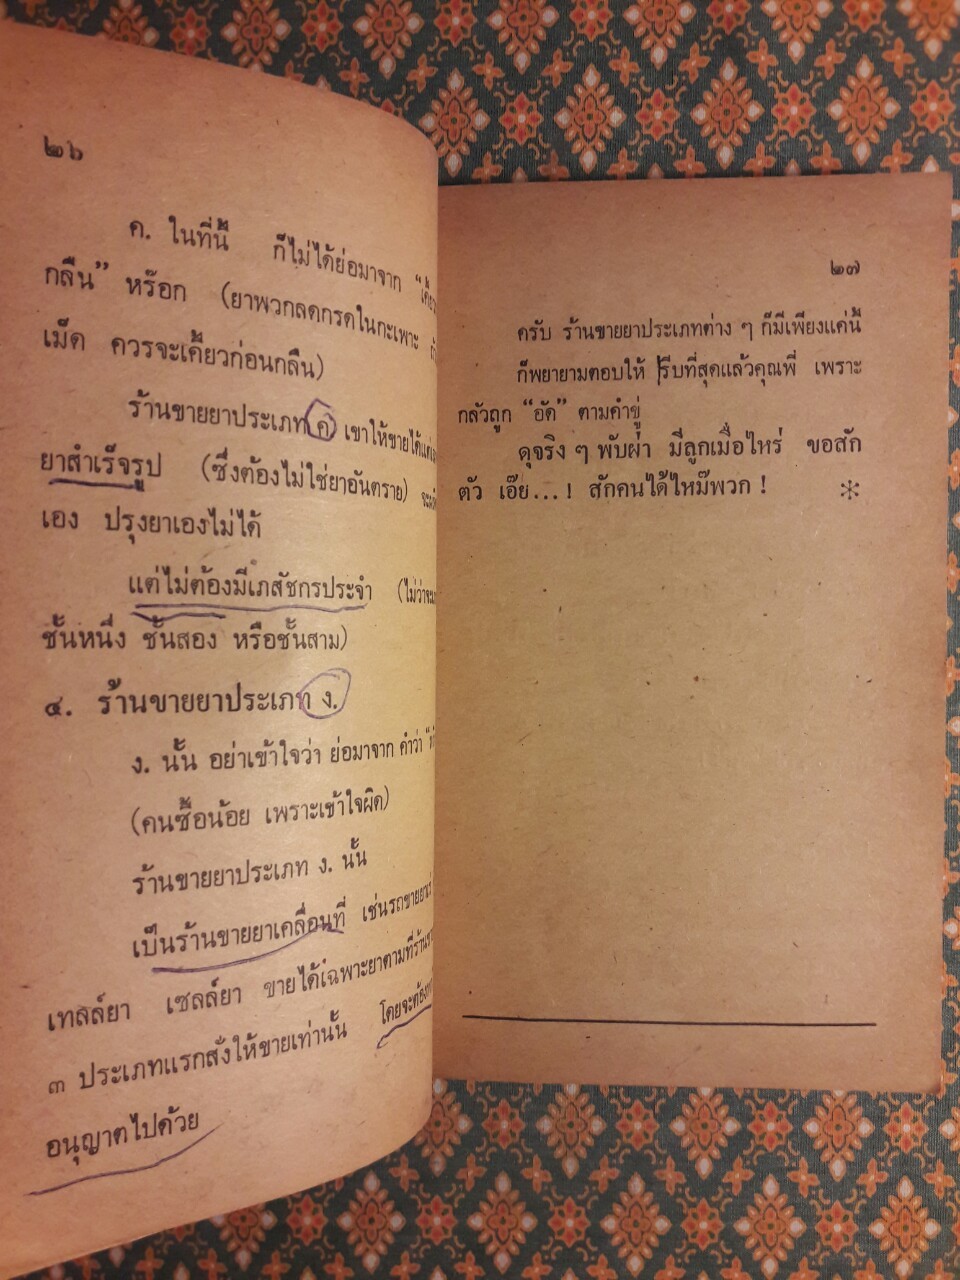 ๒๖
ค. ในที่นี้ ก็ไม่ได้ย่อมาจาก
กลืน” หร๊อก (ยาพวกลดกรดในกะเพาะ
เม็ด ควรจะเคี้ยวก่อนกลืน)
ร้านขายยาประเภท ค เขาให้ขายได้แต่
ยาสำเร็จรูป (ซึ่งต้องไม่ใช่ยาอันตราย)
เอง ปรุงยาเองไม่ได้
แต่ไม่ต้องมีเภสัชกรประจำ
ชั้นหนึ่ง ชั้นสอง หรือชั้นสาม)
๔. ร้านขายยาประเภท ง.
ง. นั้น อย่าเข้าใจว่า ย่อมาจาก คำว่า
(คนซื้อน้อย เพราะเข้าใจผิด)
ร้านขายยาประเภท ง. นั้น
เป็นร้านขายยาเคลื่อนที่ เช่นรถขายยา
เทลล์ยา เซลล์ยา ขายได้เฉพาะยาตามที่ร้าน
๓ ประเภทแรกสั่งให้ขายเท่านั้น โดยจะต้อง
อนุญาตไปด้วย
๒๗
ครับ ร้านขายยาประเภทต่าง ๆ ก็มีเพียงแค่นี้
ก็พยายามตอบให้ รีบที่สุดแล้วคุณพี่ เพราะ
กลัวถูก “อัด” ตามคำขู่
ดุจริง ๆ พับผ่า มีลูกเมื่อไหร่ ขอสัก
ตัว เอ๊ย...! สักคนได้ไหม๊พวก !